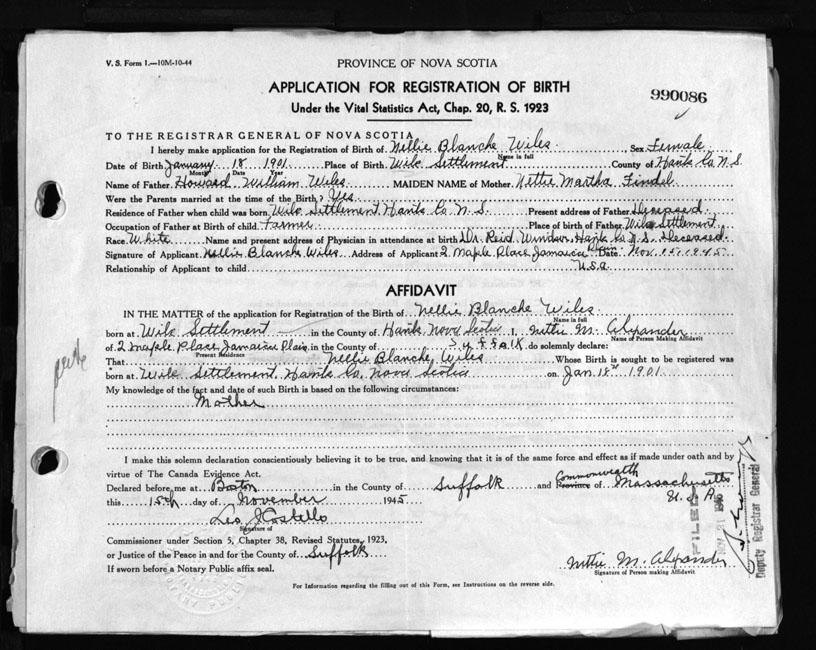 V. S. Form 1.—10M-10-44
PROVINCE OF NOVA SCOTIA
APPLICATION FOR REGISTRATION OF BIRTH
990086
Under the Vital Statistics Act, Chap. 20, R. S. 1923
TO THE REGISTRAR GENERAL OF NOVA SCOTIA
I hereby make application for the Registration of Birth of Nellie Blanche Wiles Sex Female
Name in full
Date of Birth January 18 1901 Place of Birth Wile Settlement County of Hants Co N.S
Month Date Year
Name of Father Howard William Wiles MAIDEN NAME of Mother Nettie Martha
Were the Parents married at the time of the Birth? Yes
Residence of Father when child was born Wile Settlement Hants Co N.S. Present address of Father Deceased
Occupation of Father at Birth of child Farmer Place of birth of Father Wile Settlement
Race White Name and present address of Physician in attendance at birth Dr. Reid Windsor, Hants Co N.S. Deceased
Signature of Applicant Nellie Blanche Wiles Address of Applicant 2 Maple Place Jamaica Plain Date Nov. 15. 1945
Relationship of Applicant to child U.S.a.
AFFIDAVIT
IN THE MATTER of the application for Registration of the Birth of Nellie Blanche Wiles
Name in full
born at Wile Settlement in the County of Hants Nova Scotia I, Nettie M. Alexander
Name of Person Making Affidavit
of 2 Maple Place, Jamaica Plain in the County of Suffolk do solemnly declare:
Present Residence
That Nellie Blanche Wiles Whose Birth is sought to be registered was
born at Wile Settlement, Hants Co, Nova Scotia on Jan 18th 1901
My knowledge of the fact and date of such Birth is based on the following circumstances:
Mother
I make this solemn declaration conscientiously believing it to be true, and knowing that it is of the same force and effect as if made under oath and by
virtue of The Canada Evidence Act.
Declared before me at Boston in the County of Suffolk and Commonwealth Province of Massachusetts
this 15th day of November 1945 U.S.A.
Leo J Costello
Signature of
Commissioner under Section 5, Chapter 38, Revised Statutes, 1923,
or Justice of the Peace in and for the County of Suffolk
If sworn before a Notary Public affix seal.
Nettie M. Alexander
Signature of Person making Affidavit
For Information regarding the filling out of this Form, see Instructions on the reverse side.
FILED
Deputy Registrar General